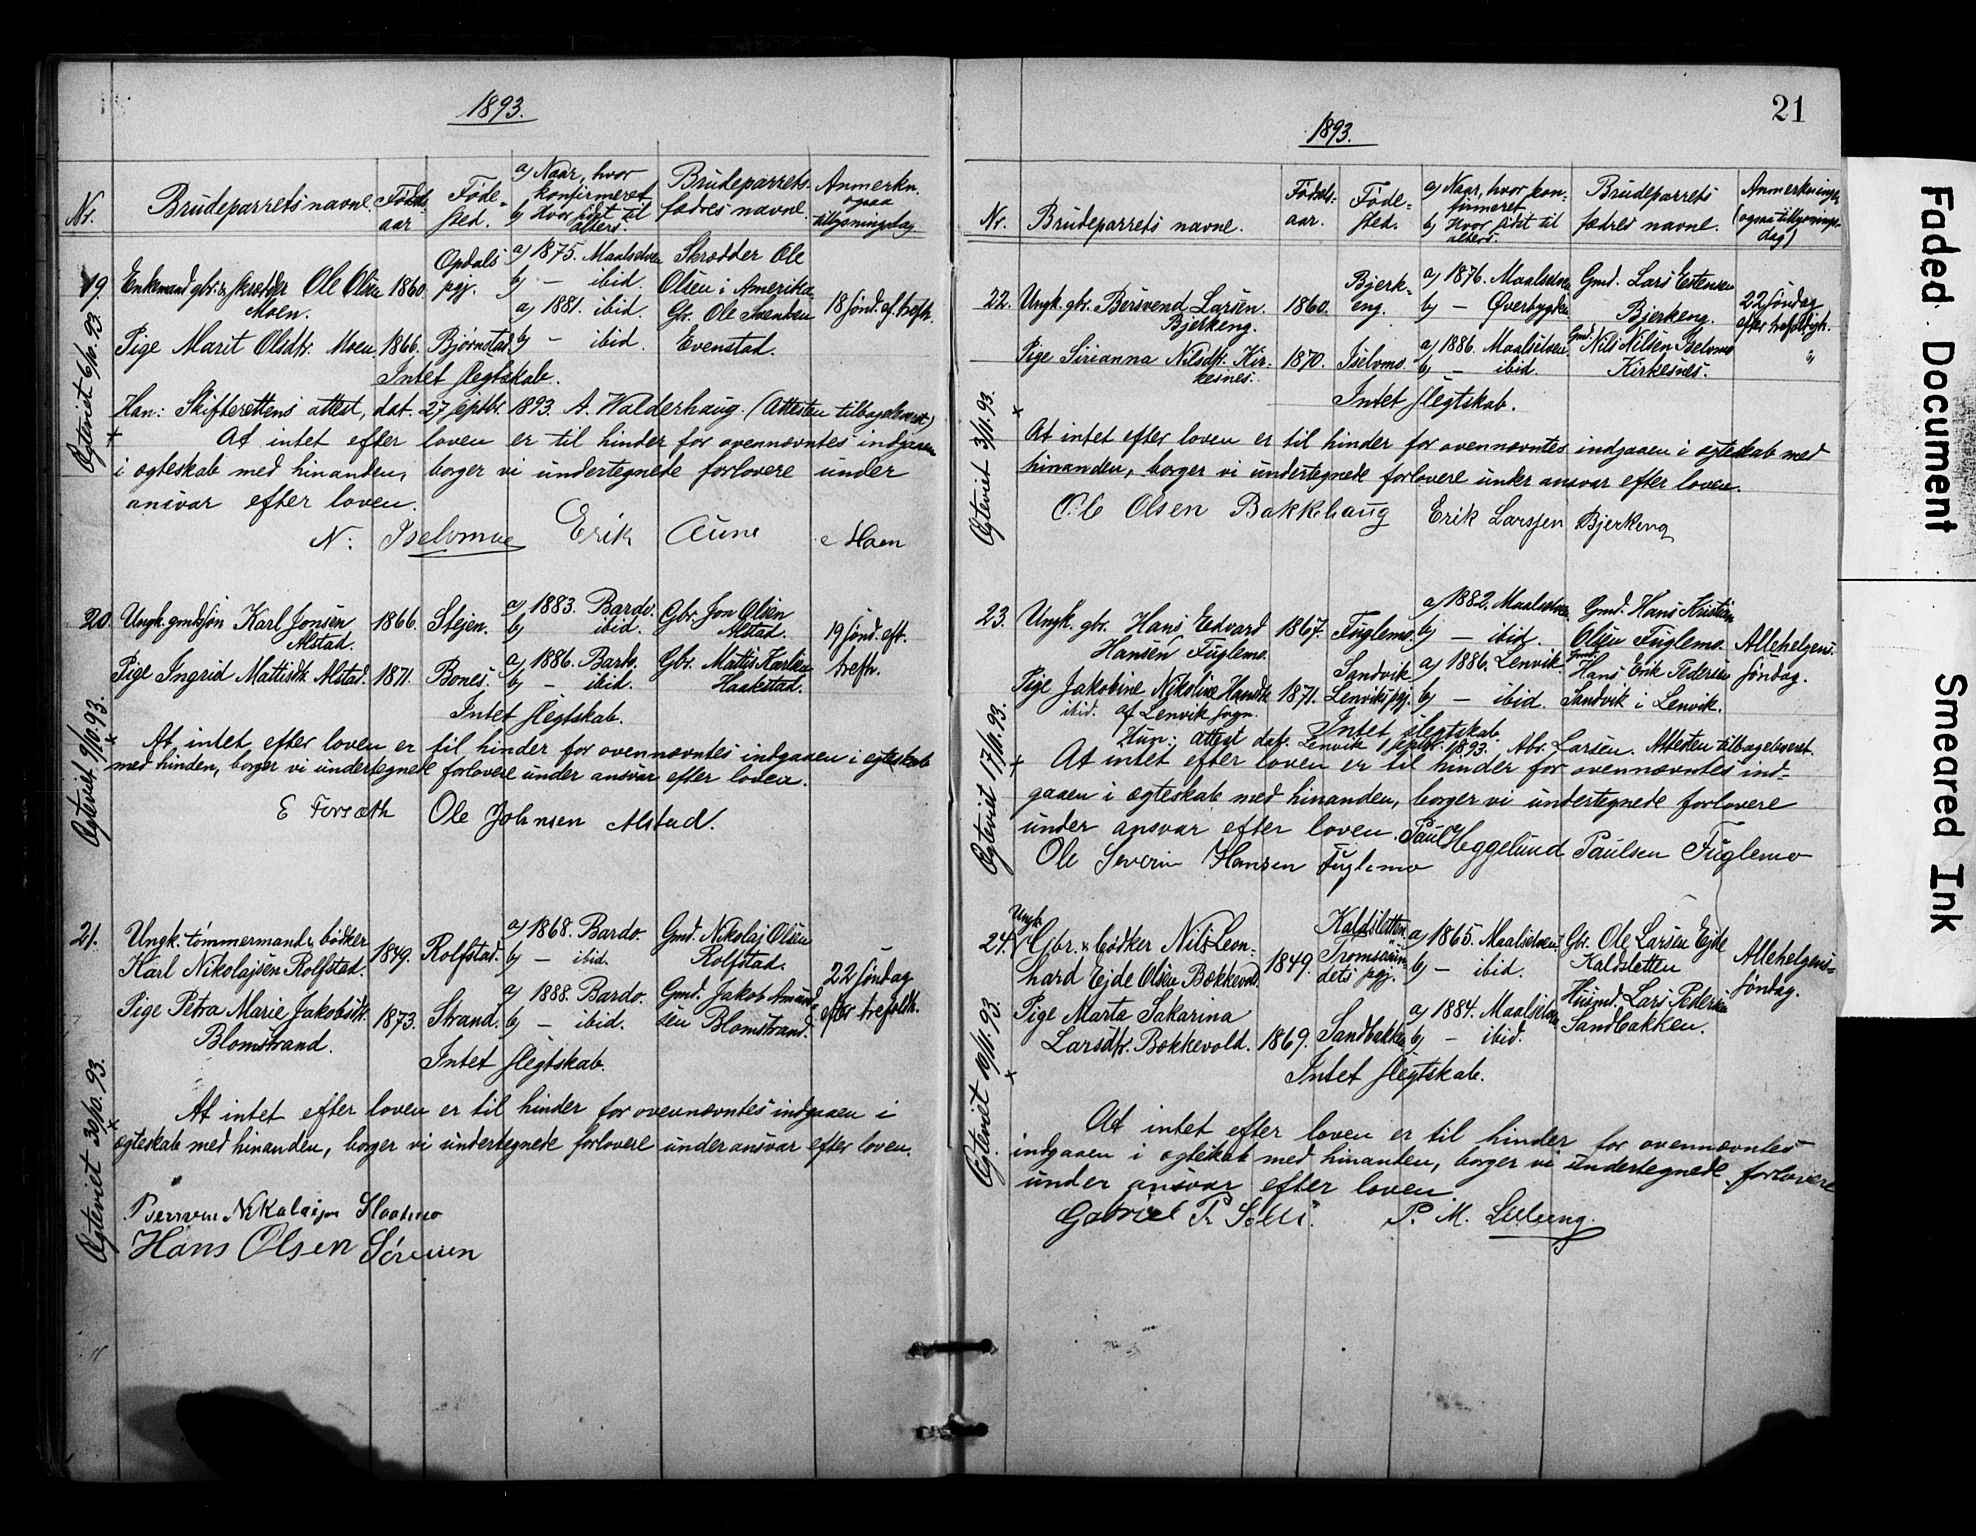 1893.
Nr. Brudeparrets navne. Føds. aar Føde- sted. a) Naar, hvor konfirmeret b) Hvor sidst til alters. Brudeparrets fædres navne. Anmerkn. ogsaa tillysningsdag
19. Enkemand gbr. & skrædder Ole Olsen Moen. 1860. Opdals pgj. a) 1875. Maalselven b) — ibid. Skrædder Ole Olsen i Amerika 18 sønd. ef. trefh.
Pige Marit Olsdtr. Moen 1866. Bjørnstad. a) 1881. ibid. b) — ibid. Gbr. Ole Svendsen Evenstad.
Intet slegtskab.
Han: Skifterettens attest, dat. 27 septbr. 1893. A. Walderhaug. (Attesten tilbageleveret)
At intet efter loven er til hinder for ovennævntes indgaaen
i ægteskab med hinanden, borger vi undertegnede forlovere under
ansvar efter loven.
N. Iselvmo Erik Aune Moen
Ægteviet 6/10. 93.
20. Ungk. gmdssøn Karl Jonsen Alstad. 1866. Stejen. a) 1883. Bardo. b) ibid. Gbr. Jon Olsen Alstad. 19 sønd. eft. trefh.
Pige Ingrid Mattisdtr. Alstad. 1871. Bones. a) 1886. Bardo. b) — ibid. Gbr. Mattis Karlsen Haakstad.
Intet slegtskab.
At intet efter loven er til hinder for ovennævntes indgaaen i ægteskab
med hinden, borger vi undertegnede forlovere under ansvar efter loven.
E Forsæth Ole Johnsen Alstad.
Ægteviet 9/10. 93.
21. Ungk. tømmermand & bødker Karl Nikolajsen Rolfstad. 1849. Rolfstad. a) 1868. Bardo. b) — ibid. Gmd. Nikolaj Olsen Rolfstad. 22 søndag efter trefoldh.
Pige Petra Marie Jakobsdtr. Blomstrand. 1873. Strand. a) 1888. Bardo. b) — ibid. Gmd. Jakob Amundsen Blomstrand.
Intet slegtskab.
At intet efter loven er til hinder for ovennævntes indgaaen i
ægteskab med hinanden, borger vi undertegnede forlovere under ansvar efter loven.
Nikolaisen
Hans Olsen
Ægteviet 30/10. 93.
21
1893.
Nr. Brudeparrets navne. Fødsels- aar. Føde- sted. a) Naar, hvor kon- firmeret b) Hvor sidst til alters. Brudeparrets fædres navne. Anmerkninger (ogsaa tillysnings- dag)
22. Ungk. gbr. Bersvend Larsen Bjerkeng. 1860. Bjerk- eng. a) 1876. Maalselven b) — Øverbygden Gmd. Lars Estensen Bjerkeng. 22 søndag efter trefoldigh.
Pige Sirianna Nilsdtr. Kir- kesnes. 1870. Iselvmo. a) 1886. Maalselven b) — ibid. Gmd. Nils Nilsen Iselvmo Kirkesnes. "
Intet slegtskab.
At intet efter loven er til hinder for ovennævntes indgaaen i ægteskab med
hinanden, borger vi undertegnede forlovere under ansvar efter loven.
Ole Olsen Bakkehaug Erik Larssen Bjerkeng
Ægteviet 3/11. 93.
23. Ungk. gbr. Hans Edvard Hansen Fuglemo. 1867. Fuglemo. a) 1882. Maalselven b) — ibid. Gmd. Hans Kristian Olsen Fuglemo. Allehelgens- søndag.
Pige Jakobine Nikoline Hansdtr. ibid. af Lenvik sogn. 1871. Sandvik Lenviks pgj. a) 1886. Lenvik b) — ibid. Gmd. Hans Erik Pedersen Sandvik i Lenvik.
Intet slegtskab
Hun: attest dat. Lenvik septbr. 1893. Abr. Larsen. Attesten tilbageleveret.
At intet efter loven er til hinder for ovennævntes ind-
gaaen i ægteskab med hinanden, borger vi undertegnede forlovere
under ansvar efter loven. Paul Heggelund Paulsen Fuglemo
Ole Severin Hansen Fuglemo
Ægteviet 17/11. 93.
24. Ungk. Gbr. & bødker Nils Leon- hard Ejde Olsen Bokkevold. 1849. Kaldsletten Tromsøsun- dets pgj. a) 1865. Maalselven b) — ibid. Gbr. Ole Larsen Ejde Kaldsletten Allehelgens- søndag.
Pige Marta Sakarina Larsdtr. Bokkevold. 1869. Sandbakken a) 1884. Maalselven b) — ibid. Husmd. Lars Pedersen Sandbakken.
Intet slegtskab.
At intet efter loven er til hinder for ovennævntes
indgaaen i ægteskab med hinanden, borger vi undertegnede forlovere
under ansvar efter loven
Gabriel P. M.
Ægteviet 10/11. 93.
Faded Document
Smeared Ink